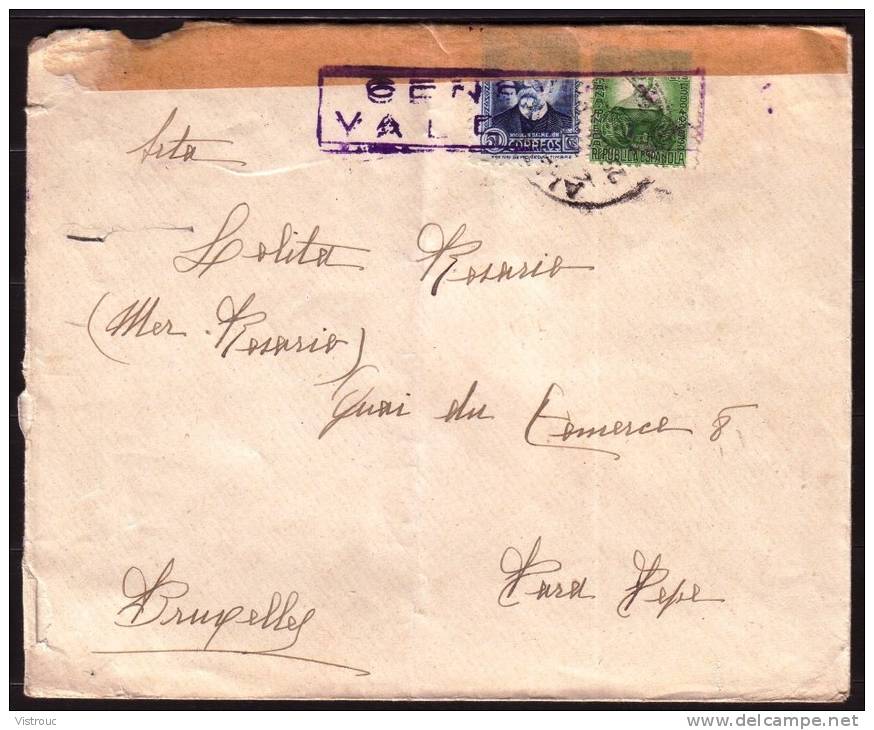 CENS
VALE
50 CORREOS
REPUBLICA ESPAÑOLA
Srta
Lolita Rosario
(Mer. Rosario)
Quai du Comerce 8
Para Pepe
Bruxelles
Vistrouc
www.delcampe.net